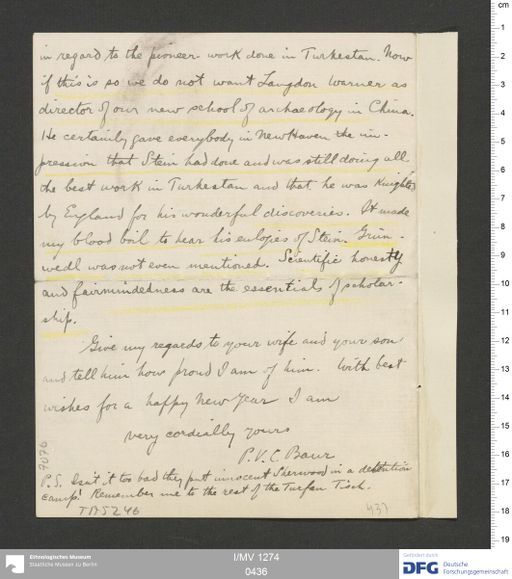 in regard to the pioneer work done in Turkestan. Now
if this is so we do not want Langdon Warner as
director of our new school of archaeology in China.
He certainly gave everybody in New Haven the im-
pression that Stein had done and was still doing all
the best work in Turkestan and that he was knighted
by England for his wonderful discoveries. It made
my blood boil to hear his eulogies of Stein. Grün-
wedl was not even mentioned. Scientific honesty
and fairmindedness are the essentials of scholar-
ship.
Give my regards to your wife and your son
and tell him how proud I am of him. With best
wishes for a happy New Year I am
very cordially yours
P.V.C. Baur
P.S. Isn't it too bad they put innocent Sherwood in a detention
camp! Remember me to the rest of the Turfan Tisch.
7076
TA 5246
437
Ethnologisches Museum
Staatliche Museen zu Berlin
I/MV 1274
0436
Gefördert durch
DFG Deutsche
Forschungsgemeinschaft
cm
1
2
3
4
5
6
7
8
9
10
11
12
13
14
15
16
17
18
19